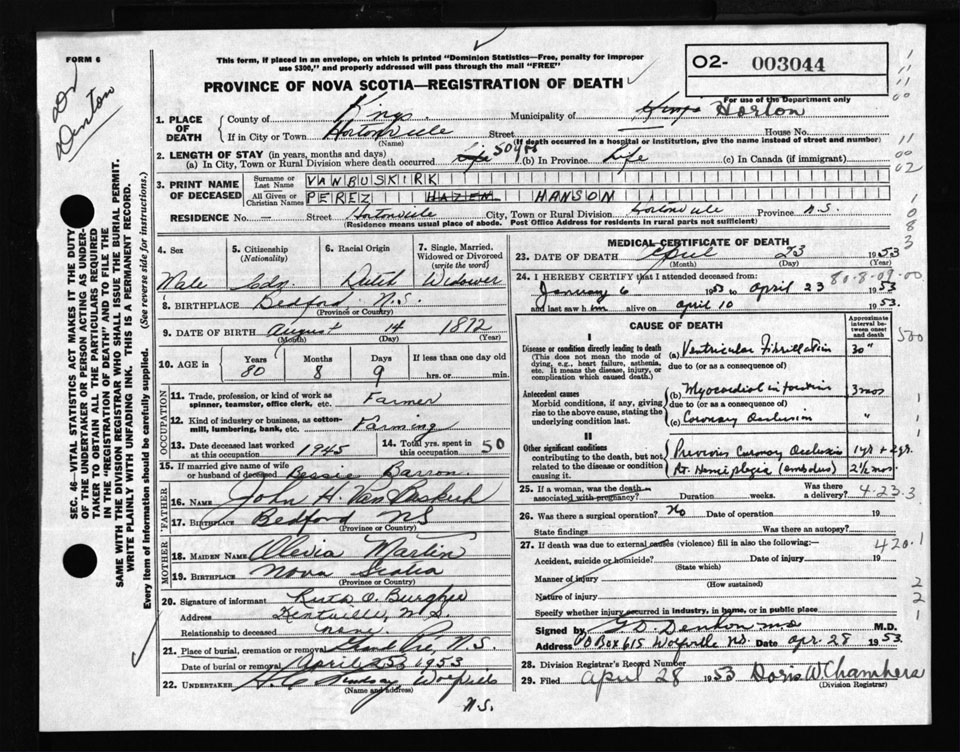 FORM 6
This form, if placed in an envelope, on which is printed "Dominion Statistics—Free, penalty for improper
use $300," and properly addressed will pass through the mail "FREE"
PROVINCE OF NOVA SCOTIA—REGISTRATION OF DEATH
O2- 003044
For use of the Department only
Dr Denton
SEC. 46—VITAL STATISTICS ACT MAKES IT THE DUTY
OF THE UNDERTAKER OR PERSON ACTING AS UNDER-
TAKER TO OBTAIN ALL THE PARTICULARS REQUIRED
IN THE "REGISTRATION OF DEATH" AND TO FILE THE
SAME WITH THE DIVISION REGISTRAR WHO SHALL ISSUE THE BURIAL PERMIT.
WRITE PLAINLY WITH UNFADING INK. THIS IS A PERMANENT RECORD.
Every item of information should be carefully supplied. (See reverse side for instructions.)
1. PLACE OF DEATH
County of Kings Municipality of Kings Horton
If in City or Town Hortonville Street House No.
(Name) (If death occurred in a hospital or institution, give the name instead of street and number)
2. LENGTH OF STAY (in years, months and days)
(a) In City, Town or Rural Division where death occurred Life 50 yrs (b) In Province Life (c) In Canada (if immigrant)
3. PRINT NAME OF DECEASED
Surname or Last Name VANBUSKIRK
All Given or Christian Names PEREZ HAZEN HANSOM
RESIDENCE No. — Street Hortonville City, Town or Rural Division Hortonville Province N.S.
(Residence means usual place of abode. Post Office Address for residents in rural parts not sufficient)
4. Sex
Male
5. Citizenship (Nationality)
Cdn.
6. Racial Origin
Dutch
7. Single, Married, Widowed or Divorced (write the word)
Widower
8. BIRTHPLACE Bedford N.S.
(Province or Country)
9. DATE OF BIRTH August 14 1872
(Month) (Day) (Year)
10. AGE in
Years 80 Months 8 Days 9 If less than one day old
hrs. or min.
OCCUPATION
11. Trade, profession, or kind of work as
spinner, teamster, office clerk, etc. Farmer
12. Kind of industry or business, as cotton-
mill, lumbering, bank, etc. Farming
13. Date deceased last worked
at this occupation 1945
14. Total yrs. spent in
this occupation 50
15. If married give name of wife
or husband of deceased Bessie Barron
FATHER
16. NAME John H. Van Buskirk
17. BIRTHPLACE Bedford NS
(Province or Country)
MOTHER
18. MAIDEN NAME Olevia Martin
19. BIRTHPLACE Nova Scotia
(Province or Country)
20. Signature of informant Ruth O.
Address Kentville, N.S.
Relationship to deceased none
21. Place of burial, cremation or removal Grand Pré, N.S.
Date of burial or removal April 25 1953
22. UNDERTAKER H.C. Lindsay Wolfville
(Name and address)
N.S.
MEDICAL CERTIFICATE OF DEATH
23. DATE OF DEATH April 23 1953
(Month) (Day) (Year)
24. I HEREBY CERTIFY that I attended deceased from: 80-8-09-00
January 6 1953 to April 23 1953
and last saw him alive on april 10 1953.
CAUSE OF DEATH
Approximate interval between onset and death
I
Disease or condition directly leading to death
(This does not mean the mode of
dying, e.g., heart failure, asthenia,
etc. It means the disease, injury, or
complication which caused death.)
(a) Ventricular Fibrillation 30"
due to (or as a consequence of)
Antecedent causes
Morbid conditions, if any, giving
rise to the above cause, stating the
underlying condition last.
(b) Myocardial infarction 3 mos
due to (or as a consequence of)
(c) Coronary Occlusion "
II
Other significant conditions
contributing to the death, but not
related to the disease or condition
causing it.
Previous Coronary Occlusion 1 yr + 2 yr.
Rt. Hemiplegia (embolus) 2½ mos.
25. If a woman, was the death
associated with pregnancy? Duration weeks. Was there a delivery? 4-23.3
26. Was there a surgical operation? No Date of operation 19
State findings Was there an autopsy?
27. If death was due to external causes (violence) fill in also the following:— 420.1
Accident, suicide or homicide? Date of injury 19
(State which)
Manner of injury
(How sustained)
Nature of injury
Specify whether injury occurred in industry, in home, or in public place
Signed by G.D. Denton M.D. M.D.
Address P.O. Box 615 Wolfville N.S. Date Apr. 28 1953
28. Division Registrar's Record Number
29. Filed April 28 1953 Doris W. Chambers
(Division Registrar)